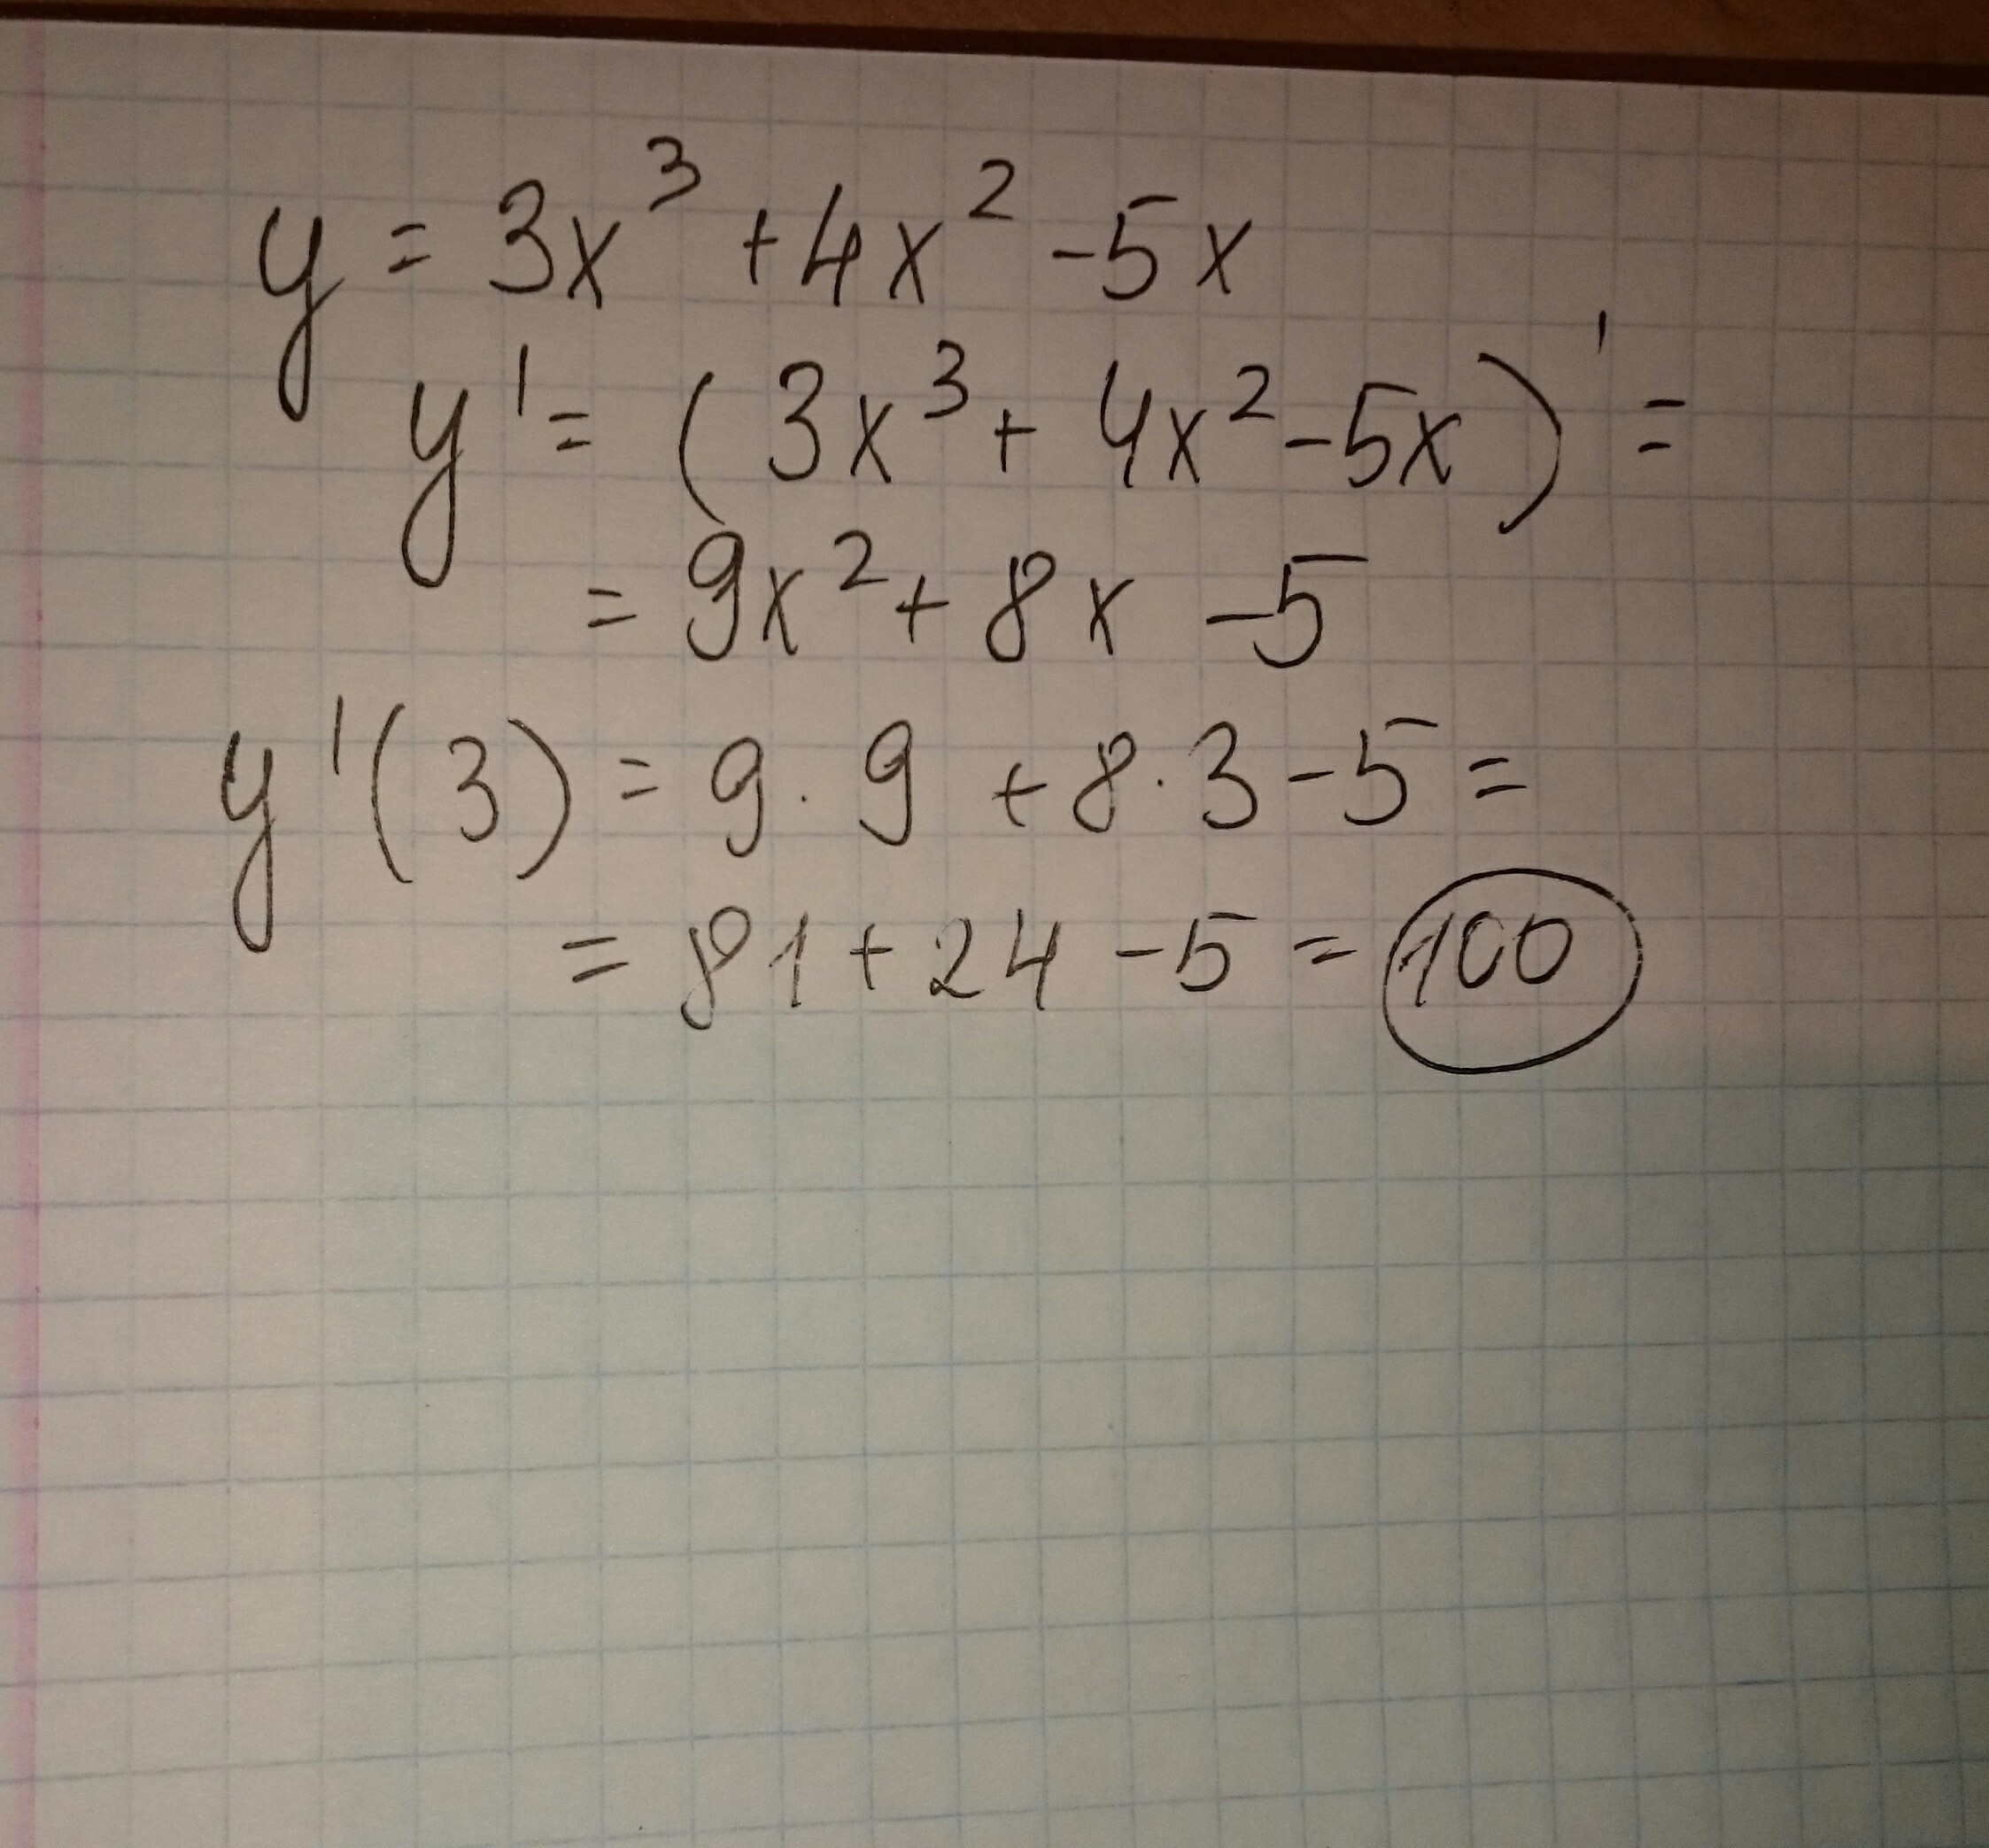 y = 3x³ + 4x² - 5x
y' = (3x³ + 4x² - 5x)' =
= 9x² + 8x - 5
y'(3) = 9 · 9 + 8 · 3 - 5 =
= 81 + 24 - 5 = 100